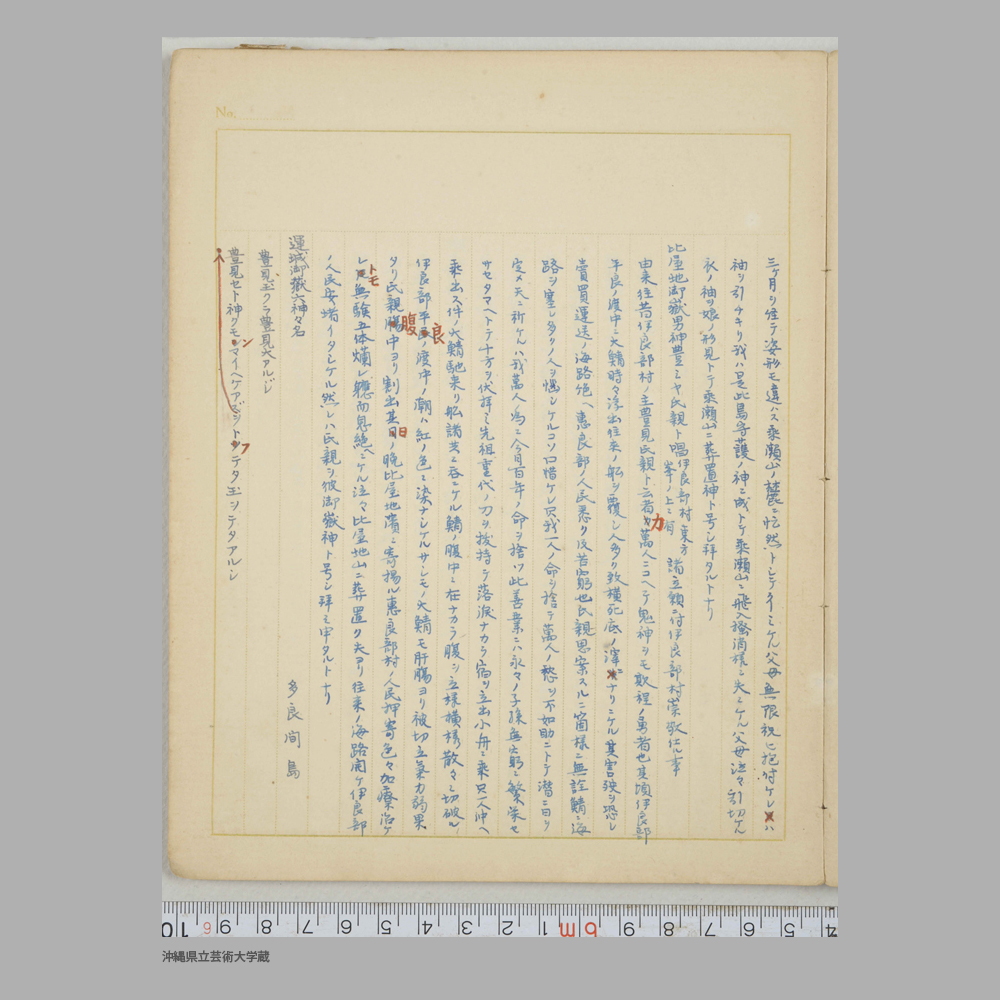 No.
三ヶ月ヲ経テ姿形モ違ハス乘瀬山ノ麓ニ忙然トシテイミケル父母無限祝ヒ抱付ケレハ
袖ヲ引チキリ我ハ是此島守護ノ神ニ成トテ乘瀬山ニ飛入掻消様ニ失ニケル父母泣々引切ケル
衣ノ袖ヲ娘ノ形見トテ乘瀬山ニ葬置神ト号シ拜タルトナリ
比屋地御嶽男神豊ミヤ氏親ト唱伊良部村東方峯ノ上ニ有 諸立願ニ付伊良部村崇敬仕ル事
由来往昔伊良部村ノ主豊見氏親ト云者力萬人ニコヘテ鬼神ヲモ欺程ノ勇者也其頃伊良部
平良ノ渡中ニ大鯖時々浮出往来ノ船ヲ覆シ人多ク致横死底ノ滓ニナリニケル其害殃ヲ恐レ
賣買運送ノ海路絶ヘ惠良部人民悉ク及苦窮也氏親思案スルニ箇様ニ無詮鯖ニ海
路ヲ塞レ多クノ人ヲ悩シケルコソ口惜ケレ只我一人ノ命ヲ捨テ萬人ノ愁ヲ不如助ニトテ潛ニ日ヲ
定メ天ニ祈ケルハ我萬人ノ為ニ今月百年ノ命ヲ捨ツ此善業ニハ永々ノ子孫無窮ニ繁栄セ
サセタマヘトテ十方ヲ伏拜ミ先祖重代ノ刀ヲ拔持テ落涙ナカラ宿ヲ立出小舟ニ乘只一人沖ヘ
乘出ス件ノ大鯖馳来リ船諸共ニ呑ニケル鯖ノ腹中ニ在ナカラ腹ヲ立様横様散々ニ切破ル
伊良部平良ノ渡中ノ潮ハ紅ノ色ニ染ナシケルサシモノ大鯖モ肝腸ヨリ被切立氣力弱果
タリ氏親腹中ヨリ割出其日ノ晩比屋地濱ニ寄揚ル惠良部村ノ人民押寄色々加療治ケ
レトモ無驗五体爛レ軈而息絶ヘニケル泣々比屋地山ニ葬置ク夫ヨリ往来ノ海路開ケ伊良部
ノ人民安堵イタシケル然レハ氏親ヲ彼御嶽神ト号シ拜ミ申タルトナリ
多良間島
運城御嶽六神々名
豊見玉クラ豊見大アルジ
豊見セト神クモンマイヘケアジシトフテタ玉シテタアルシ
沖縄県立芸術大学蔵